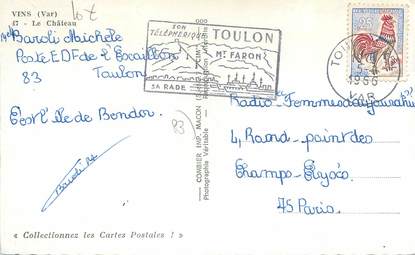 VINS (Var)
47 - Le Château
Melle Baroli Michèle
Poste EDF de l'Escaillon
83 Toulon
C'est l'île de Bendor.
Baroli M
83
« Collectionnez les Cartes Postales ! »
COMBIER IMP. MACON
Photographie Véritable
SON
TÉLÉPHÉRIQUE
SA RADE
TOULON
MT FARON
TOULON
1966
VAR
0,25
Radio-
4, Rond-point des
Champs-Elysées
75 Paris.